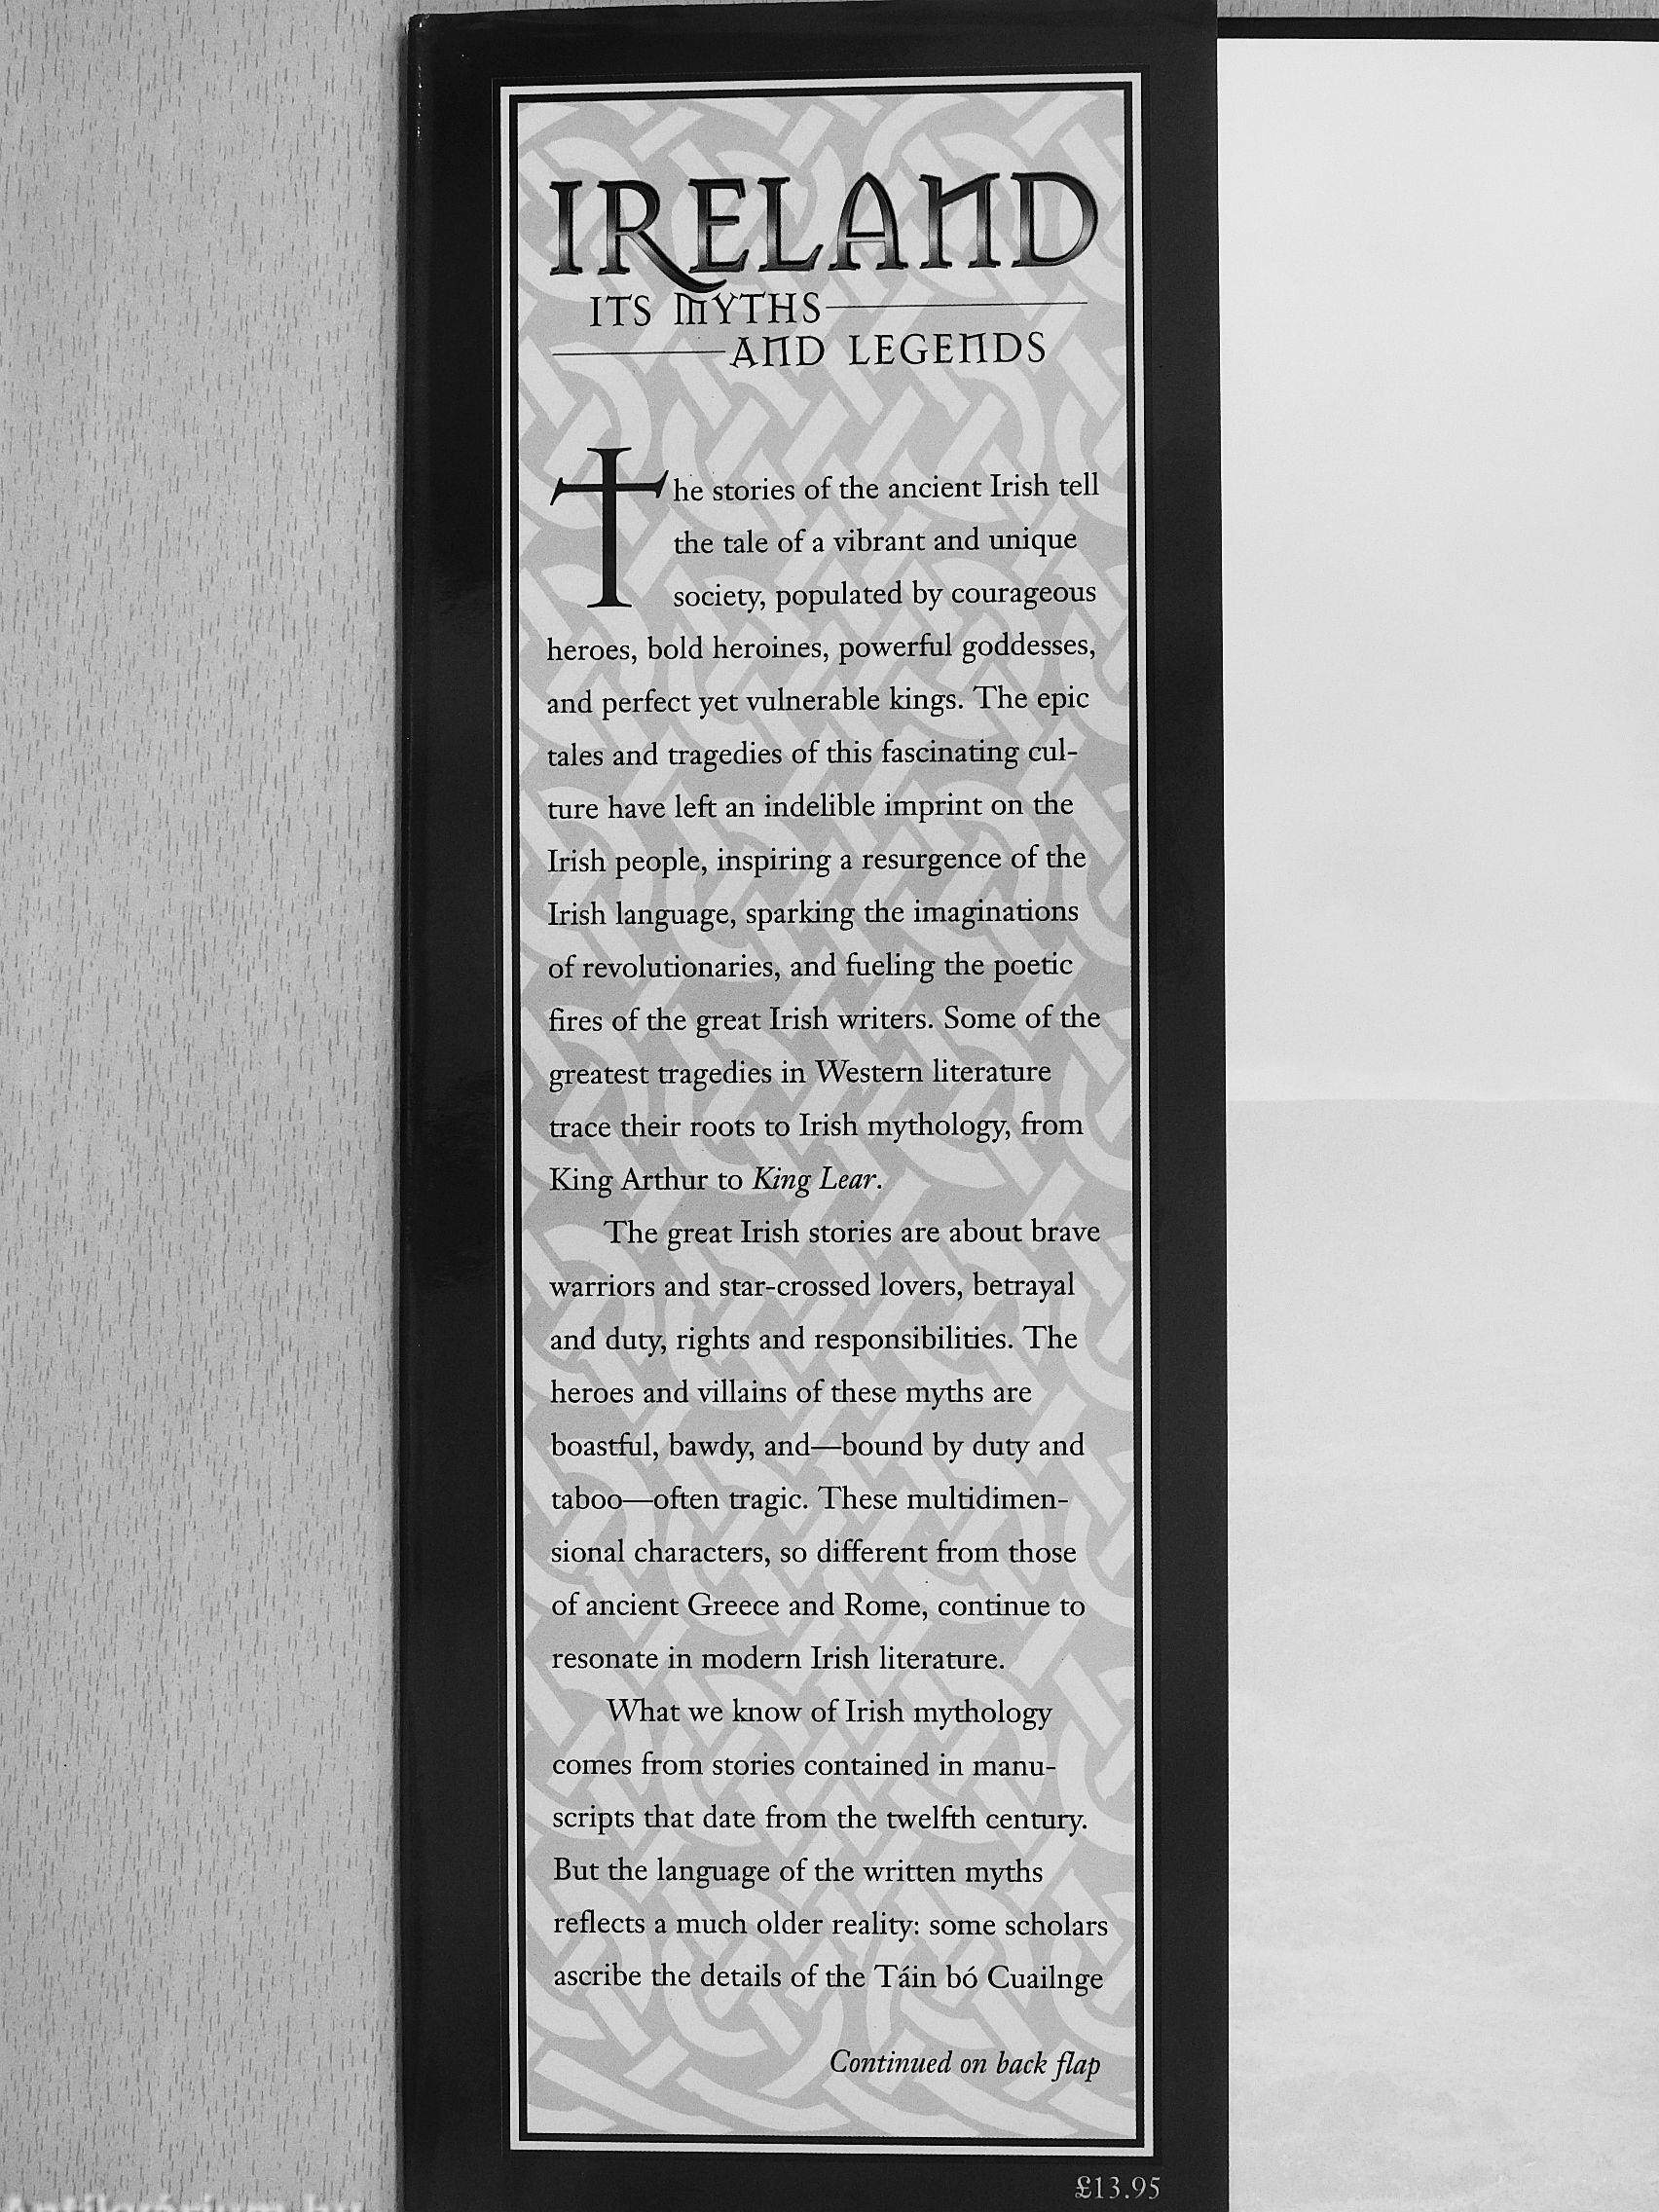 IRELAND
ITS MYTHS
AND LEGENDS
The stories of the ancient Irish tell
the tale of a vibrant and unique
society, populated by courageous
heroes, bold heroines, powerful goddesses,
and perfect yet vulnerable kings. The epic
tales and tragedies of this fascinating cul-
ture have left an indelible imprint on the
Irish people, inspiring a resurgence of the
Irish language, sparking the imaginations
of revolutionaries, and fueling the poetic
fires of the great Irish writers. Some of the
greatest tragedies in Western literature
trace their roots to Irish mythology, from
King Arthur to King Lear.
The great Irish stories are about brave
warriors and star-crossed lovers, betrayal
and duty, rights and responsibilities. The
heroes and villains of these myths are
boastful, bawdy, and—bound by duty and
taboo—often tragic. These multidimen-
sional characters, so different from those
of ancient Greece and Rome, continue to
resonate in modern Irish literature.
What we know of Irish mythology
comes from stories contained in manu-
scripts that date from the twelfth century.
But the language of the written myths
reflects a much older reality: some scholars
ascribe the details of the Táin bó Cuailnge
Continued on back flap
£13.95